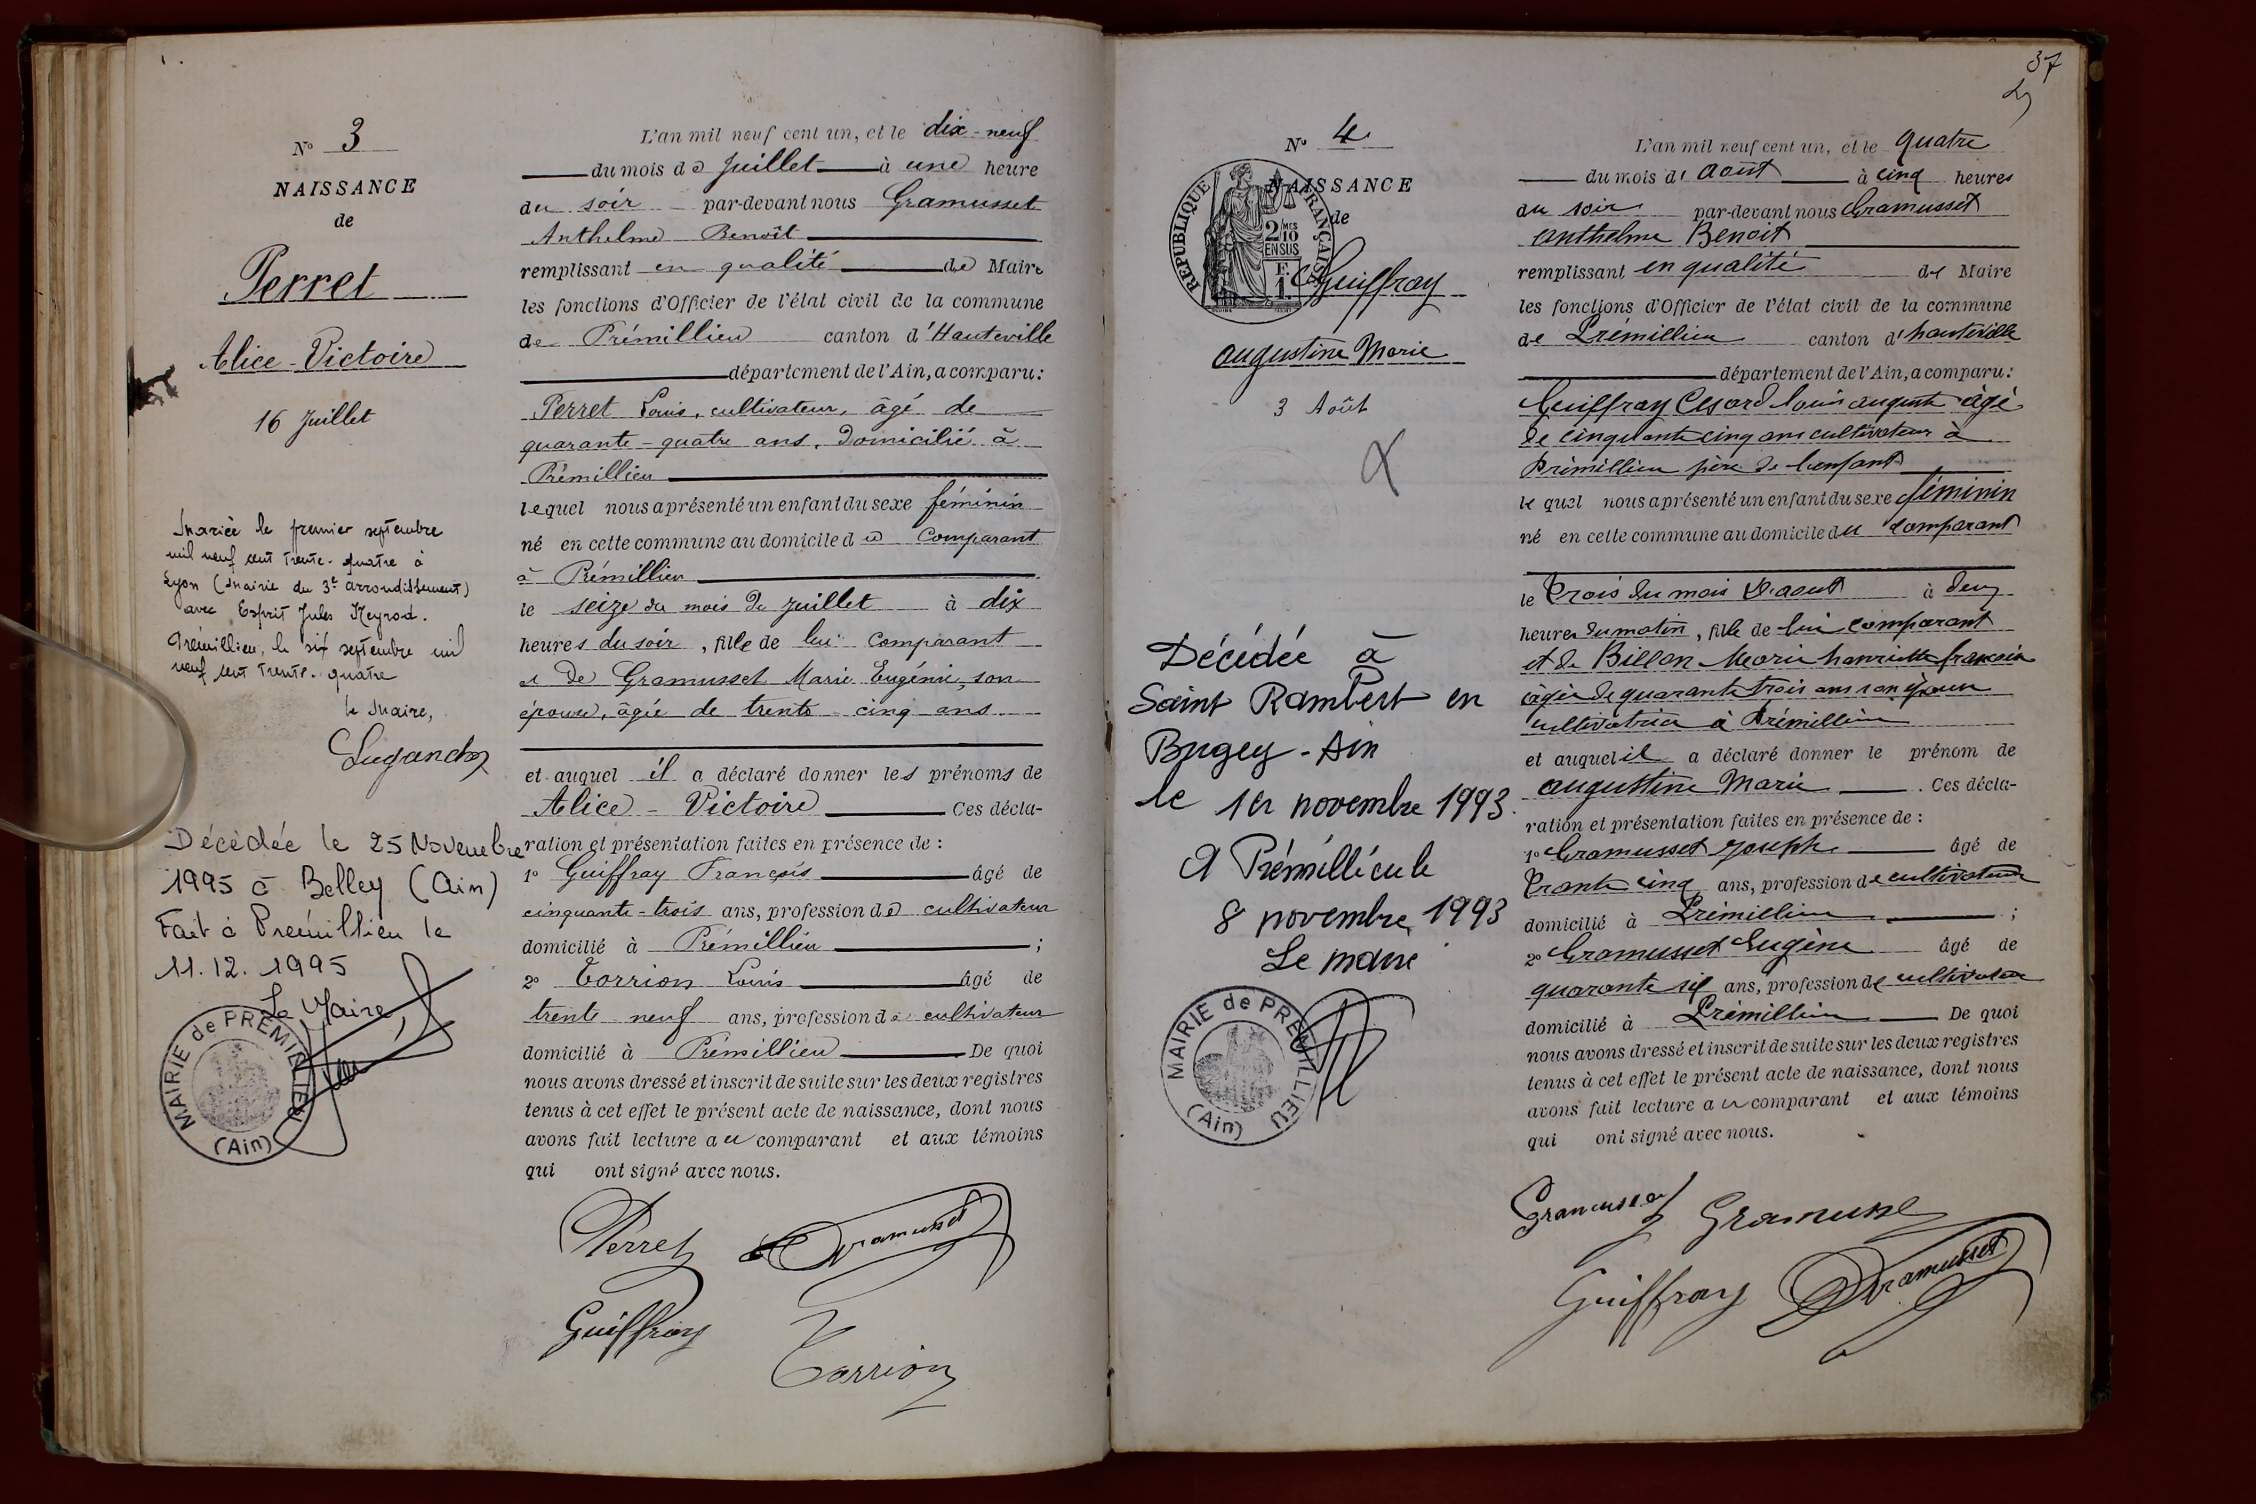 N° 3
NAISSANCE
de
Perret
Alice-Victoire
16 Juillet
Mariée le premier septembre
mil neuf cent trente-quatre à
Lyon (Mairie du 3e arrondissement)
avec Esprit Jules
Prémillieu, le six septembre mil
neuf cent trente-quatre
le Maire,
Décédée le 25 Novembre
1995 à Belley (Ain)
Fait à Prémillieu le
11.12.1995
Le Maire
MAIRIE de PRÉMILLIEU
(Ain)
L'an mil neuf cent un, et le dix-neuf
du mois de Juillet à une heure
du soir par-devant nous Gramusset
Anthelme Benoît
remplissant en qualité de Maire
les fonctions d'Officier de l'état civil de la commune
de Prémillieu canton d'Hauteville
département de l'Ain, a comparu:
Perret Louis, cultivateur, âgé de
quarante-quatre ans, domicilié à
Prémillieu
lequel nous a présenté un enfant du sexe féminin
né en cette commune au domicile du Comparant
à Prémillieu
le seize du mois de juillet à dix
heures du soir, fille de lui comparant
et de Gramusset Marie Eugénie, son
épouse, âgée de trente-cinq ans
et auquel il a déclaré donner les prénoms de
Alice-Victoire Ces décla-
ration et présentation faites en présence de:
1° Guiffray François âgé de
cinquante-trois ans, profession de cultivateur
domicilié à Prémillieu ;
2° Torrion Louis âgé de
trente-neuf ans, profession de cultivateur
domicilié à Prémillieu De quoi
nous avons dressé et inscrit de suite sur les deux registres
tenus à cet effet le présent acte de naissance, dont nous
avons fait lecture au comparant et aux témoins
qui ont signé avec nous.
Perret Gramusset
Guiffray
Torrion
37
N° 4
NAISSANCE
de
RÉPUBLIQUE FRANÇAISE
2/10
EN SUS
Guiffray
augustine Marie
3 Août
Décédée à
Saint Rambert en
Bugey-Ain
le 1er novembre 1993.
A Prémillieu le
8 novembre 1993
Le maire
MAIRIE de PRÉMILLIEU
(Ain)
L'an mil neuf cent un, et le quatre
du mois d'août à cinq heures
du soir par-devant nous Gramusset
anthelme Benoit
remplissant en qualité de Maire
les fonctions d'Officier de l'état civil de la commune
de Prémillieu canton d'hauteville
département de l'Ain, a comparu:
Guiffray Cesard louis auguste âgé
de cinquante cinq ans cultivateur à
Prémillieu père de l'enfant
lequel nous a présenté un enfant du sexe féminin
né en cette commune au domicile du comparant
le trois du mois d'aout à deux
heures du matin, fille de lui comparant
et de Billon Marie henriette
âgée de quarante trois ans son épouse
cultivatrice à Prémillieu
et auquel il a déclaré donner le prénom de
augustine Marie . Ces décla-
ration et présentation faites en présence de:
1° Gramusset joseph âgé de
trente cinq ans, profession de cultivateur
domicilié à Prémillieu ;
2° Gramusset Eugène âgé de
quarante six ans, profession de cultivateur
domicilié à Prémillieu De quoi
nous avons dressé et inscrit de suite sur les deux registres
tenus à cet effet le présent acte de naissance, dont nous
avons fait lecture au comparant et aux témoins
qui ont signé avec nous.
Gramusset Gramusset
Guiffray Gramusset